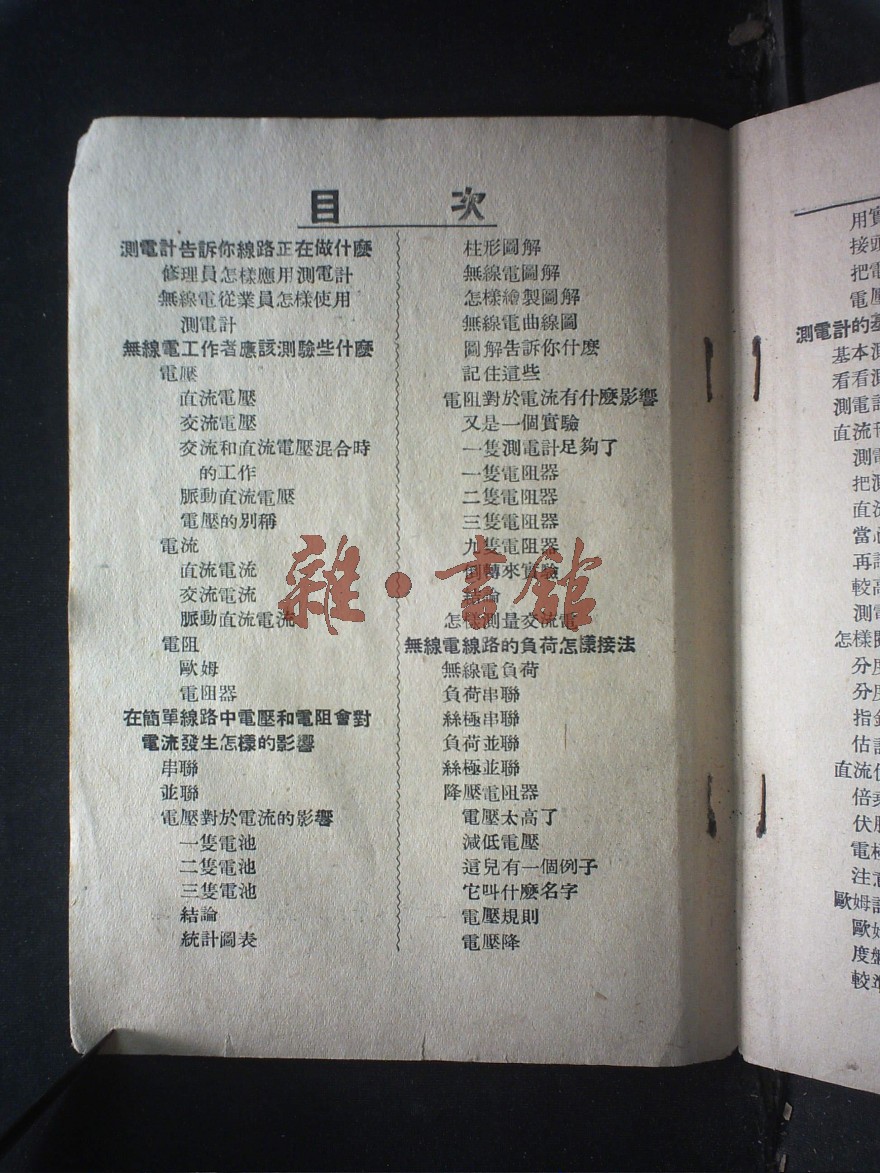 目次
測電計告訴你線路正在做什麼
修理員怎樣應用測電計
無線電從業員怎樣使用
測電計
無線電工作者應該測驗些什麼
電壓
直流電壓
交流電壓
交流和直流電壓混合時
的工作
脈動直流電壓
電壓的別稱
電流
直流電流
交流電流
脈動直流電流
電阻
歐姆
電阻器
在簡單線路中電壓和電阻會對
電流發生怎樣的影響
串聯
並聯
電壓對於電流的影響
一隻電池
二隻電池
三隻電池
結論
統計圖表
柱形圖解
無線電圖解
怎樣繪製圖解
無線電曲線圖
圖解告訴你什麼
記住這些
電阻對於電流有什麼影響
又是一個實驗
一隻測電計足夠了
一隻電阻器
二隻電阻器
三隻電阻器
九隻電阻器
倒轉來實驗
結論
怎樣測量交流電
無線電線路的負荷怎樣接法
無線電負荷
負荷串聯
絲極串聯
負荷並聯
絲極並聯
降壓電阻器
電壓太高了
減低電壓
這兒有一個例子
它叫什麼名字
電壓規則
電壓降
雜·書館
用實
接頭
把電
電壓
測電計的基
基本測
看看測
測電計
直流
測電
把測
直流
當心
再
較高
測電
怎樣
分度
分度
指針
估計
直流
倍
伏
電極
注意
歐姆計
歐姆
度盤
較準